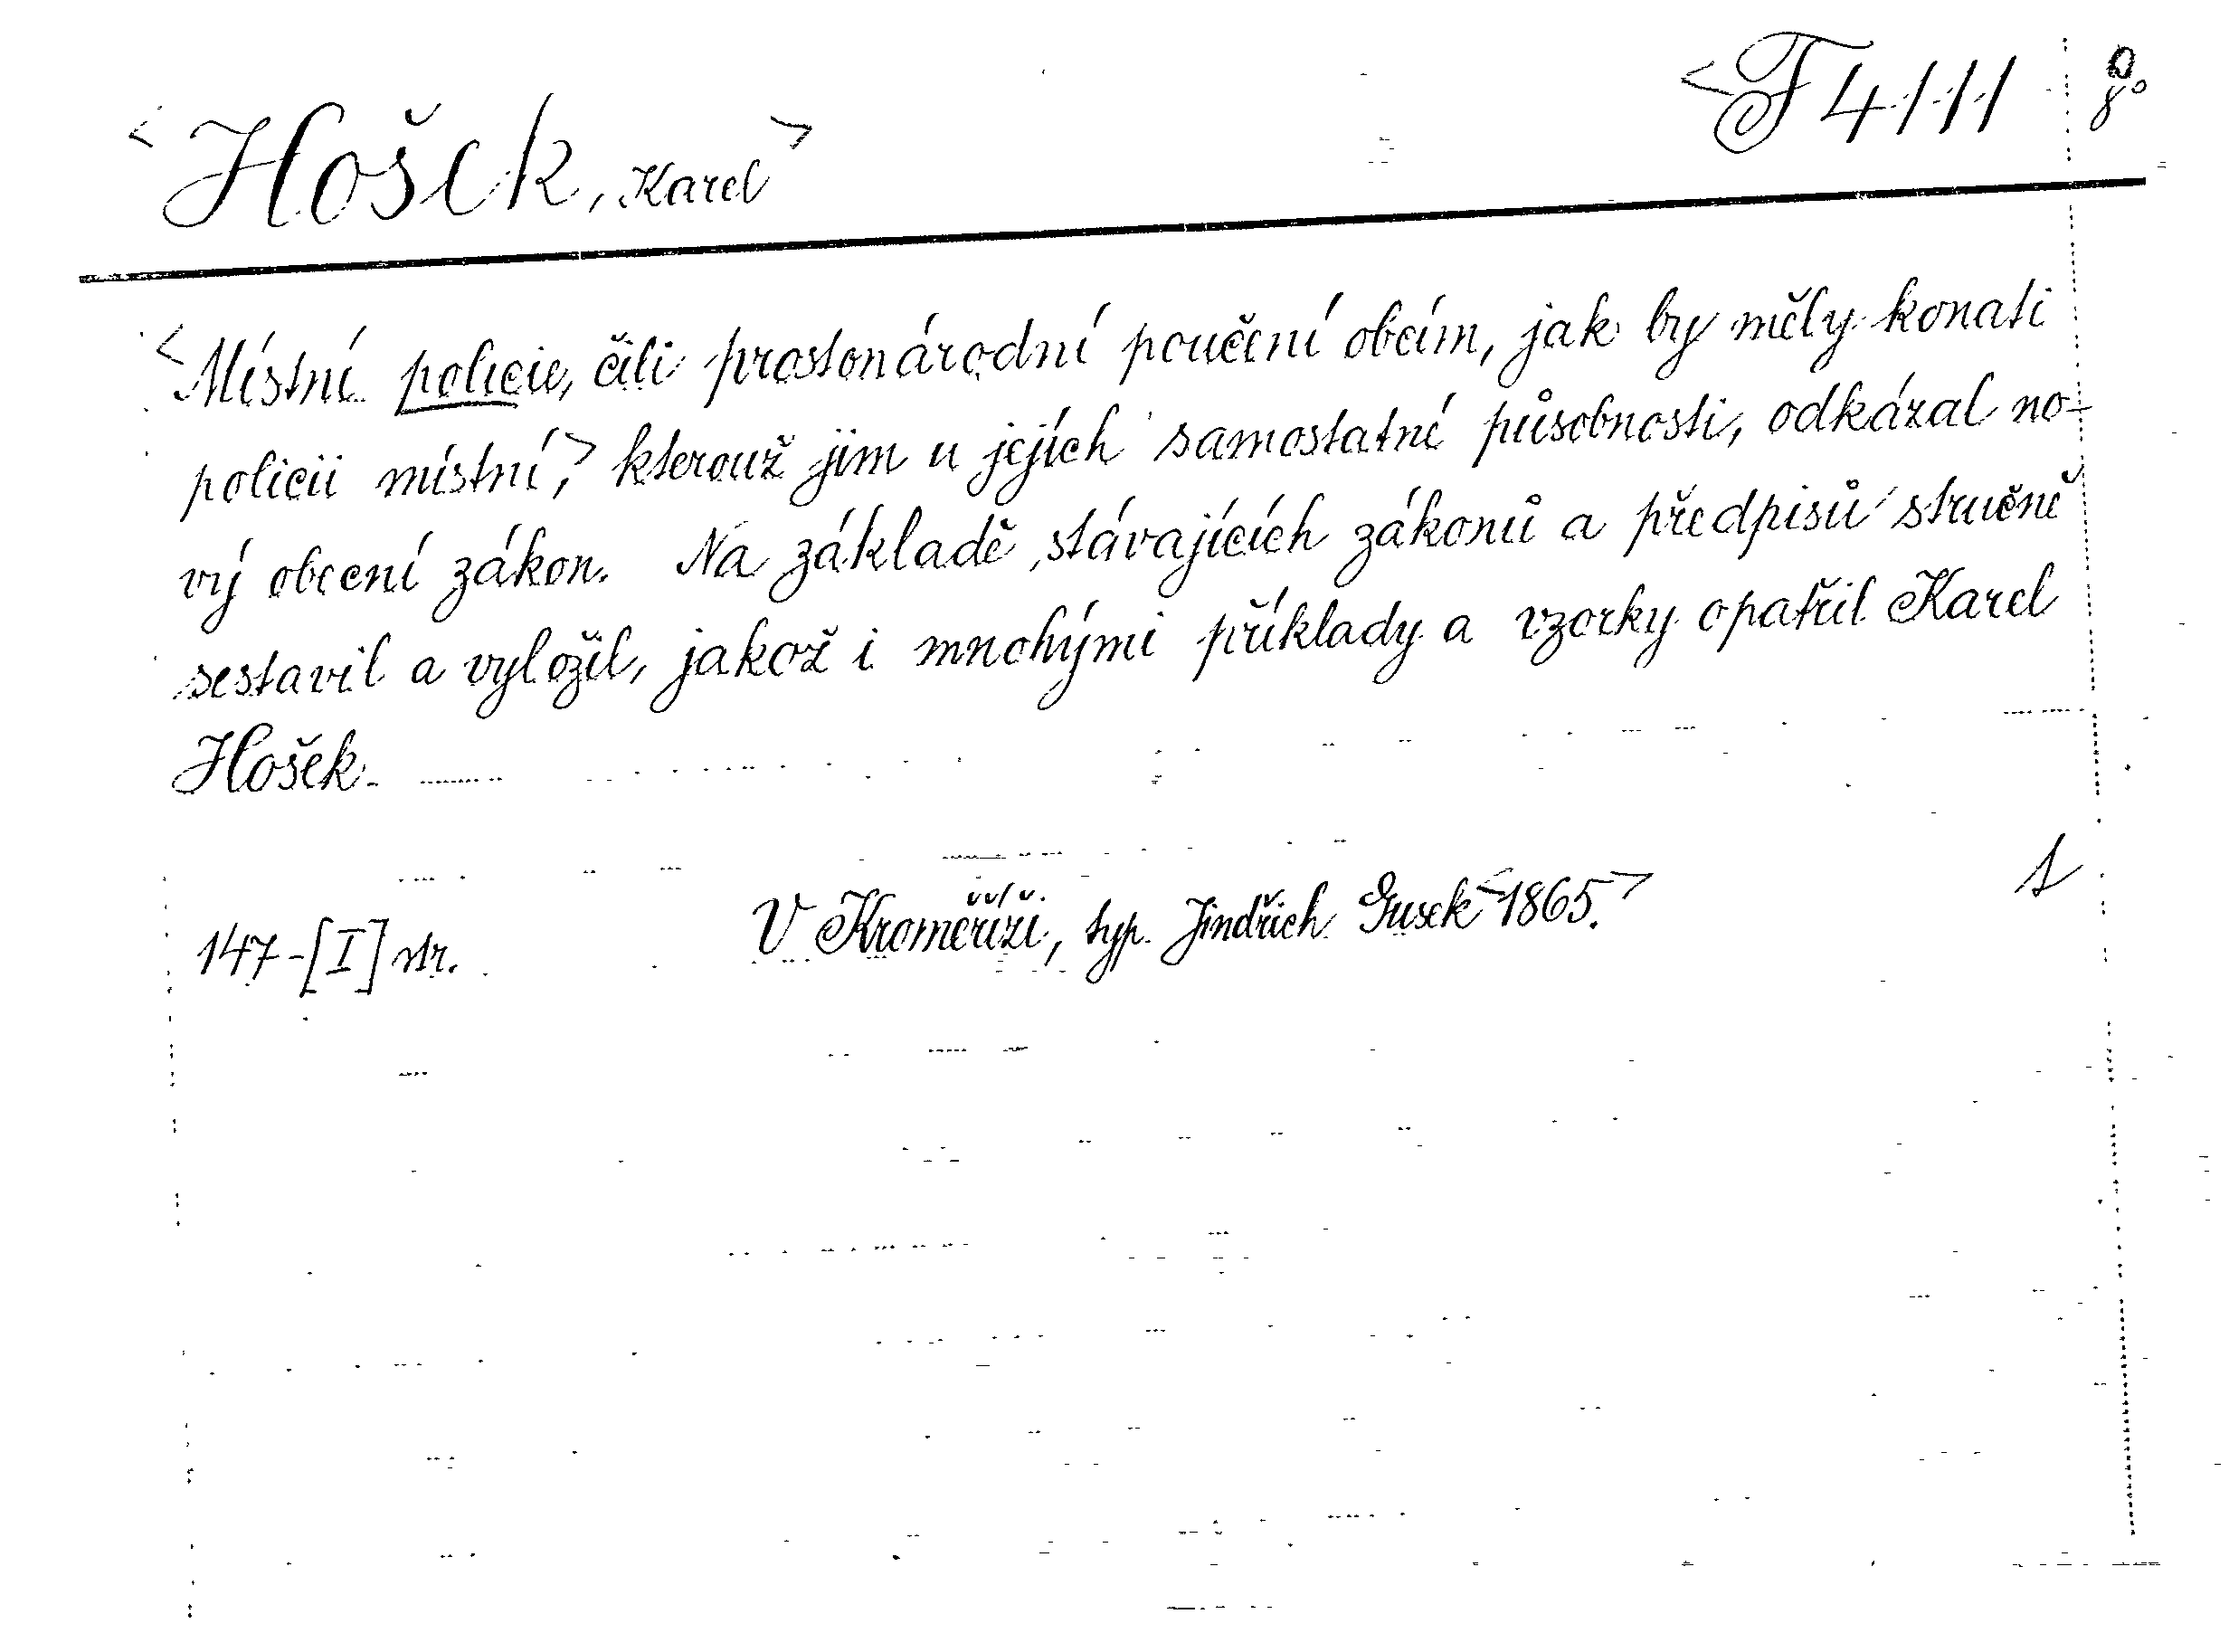 <Hošek, Karel>
<F 4111 8°
<Místní policie, čili prostonárodní poučení obcím, jak by měly konati
policii místní,> kterouž jim u jejích samostatné působnosti, odkázal no-
vý obecní zákon. Na základě stávajících zákonů a předpisů stručně
sestavil a vyložil, jakož i mnohými příklady a vzorky opatřil Karel
Hošek.
147-[I] str. V Kroměříži, typ. Jindřich Gusek <1865.>